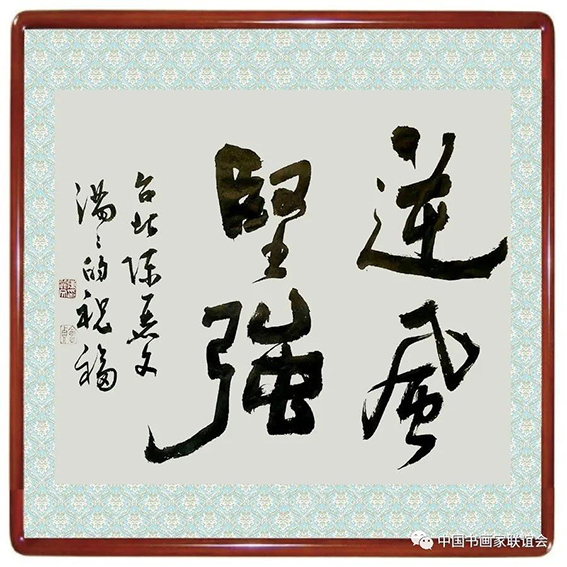 逆風
堅強
台北 陳英文
滿〻的祝福
中国书画家联谊会